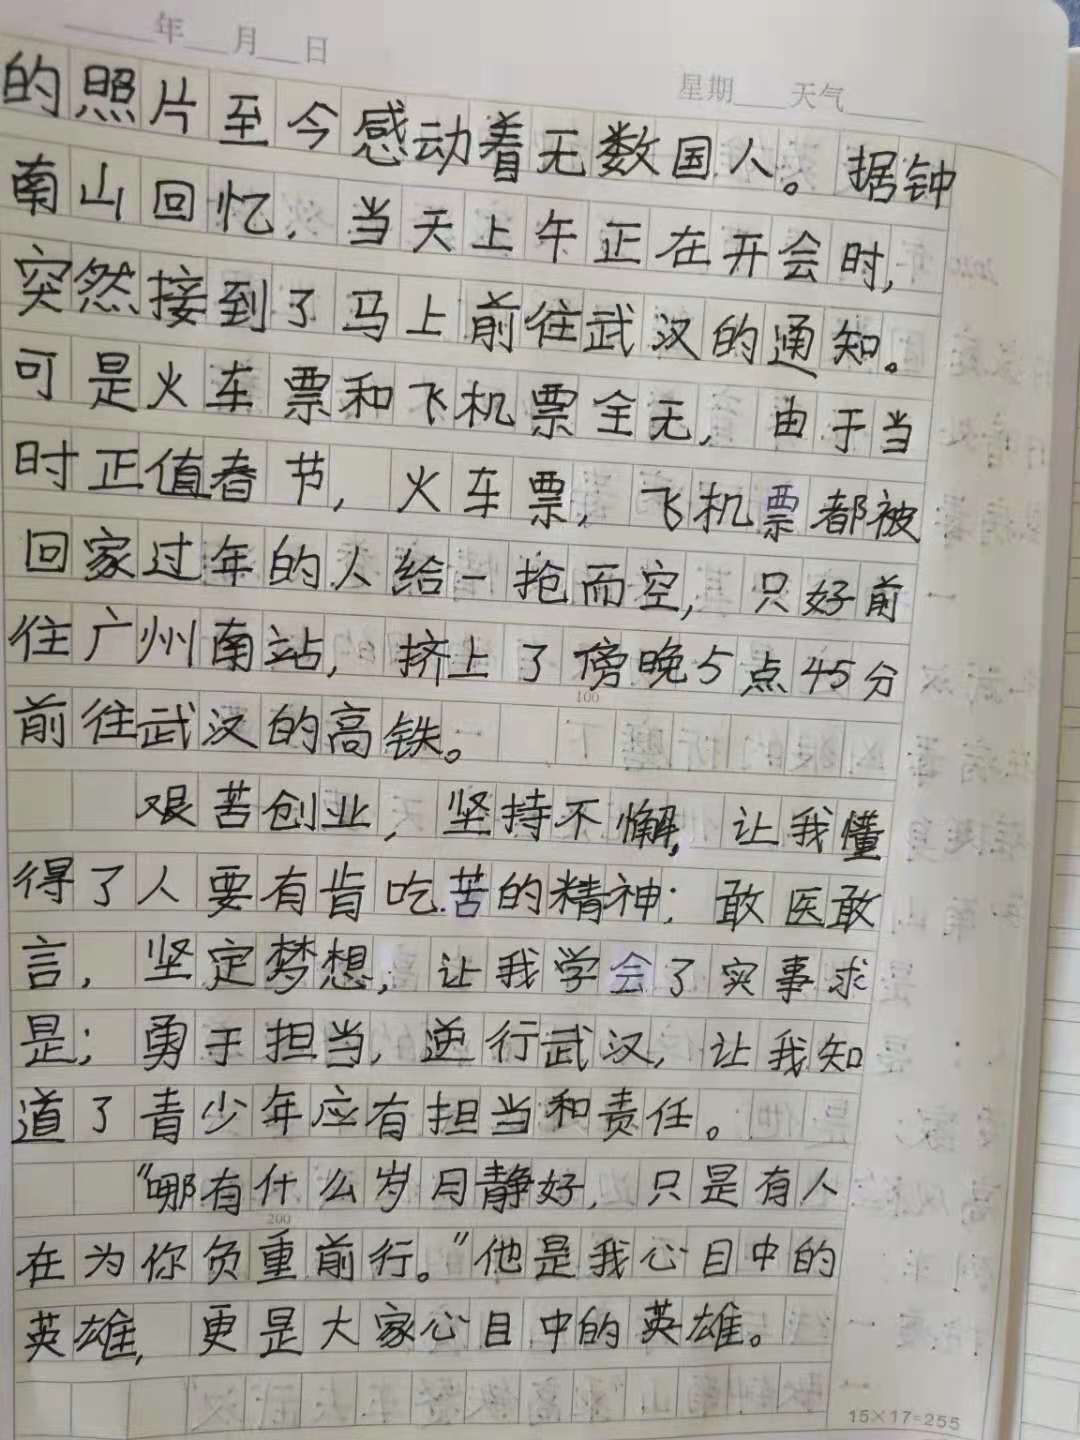 年 月 日
星期 天气
的照片至今感动着无数国人。据钟
南山回忆，当天上午正在开会时，
突然接到了马上前往武汉的通知。
可是火车票和飞机票全无，由于当
时正值春节，火车票，飞机票都被
回家过年的人给一抢而空，只好前
往广州南站，挤上了傍晚5点45分
100
前往武汉的高铁。
艰苦创业，坚持不懈，让我懂
得了人要有肯吃苦的精神；敢医敢
言，坚定梦想，让我学会了实事求
是；勇于担当，逆行武汉，让我知
道了青少年应有担当和责任。
“哪有什么岁月静好，只是有人
200
在为你负重前行。”他是我心目中的
英雄，更是大家心目中的英雄。
15×17=255